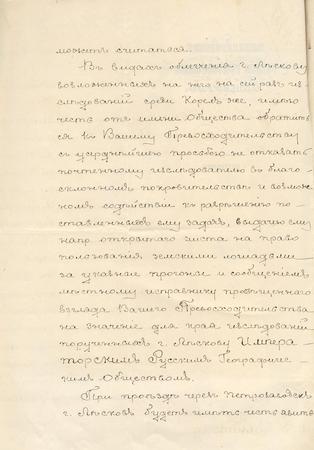 можетъ считаться.
Въ видахъ облегченія г. Лѣскову
возложенныхъ на него на сей разъ из-
слѣдованій среди Корелъ же, имѣю
честь отъ имени Общества обратить-
ся къ Вашему Превосходительству
съ усерднѣйшею просьбою не отказать
почтенному изслѣдователю въ благо-
склонномъ покровительствѣ и возмож-
номъ содѣйствіи къ разрѣшенію по-
ставленныхъ ему задачъ, выдачею ему
напр. открытаго листа на право
пользованія земскими лошадьми
за указные прогоны и сообщеніемъ
мѣстному исправнику просвѣщеннаго
взгляда Вашего Превосходительства
на значеніе для края изслѣдованій
порученныхъ г. Лѣскову Импера-
торскимъ Русскимъ Географиче-
скимъ Обществомъ.
При проѣздѣ чрезъ Петрозаводскъ
г. Лѣсковъ будетъ имѣть честь явить